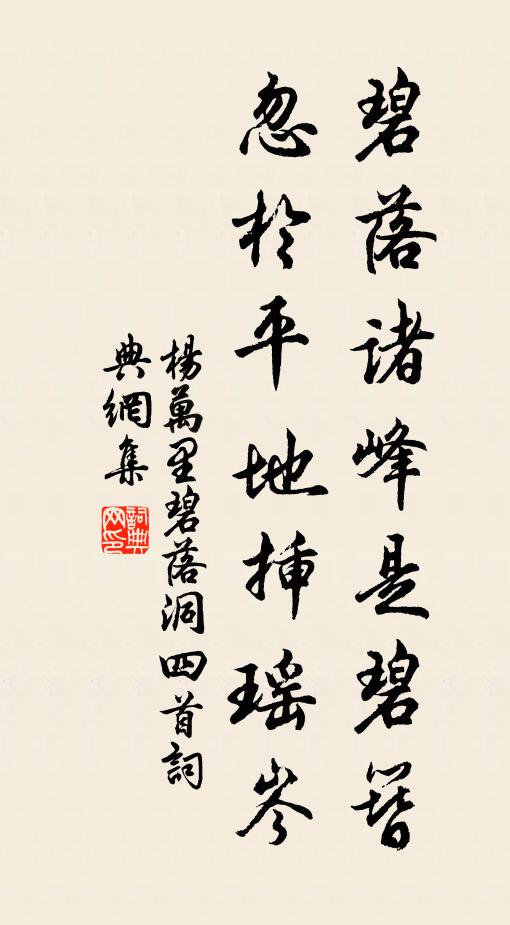 碧落諸峰是碧簪
忽於平地插瑶岑
楊萬里碧落洞四首詞
典網集
詞典
网印